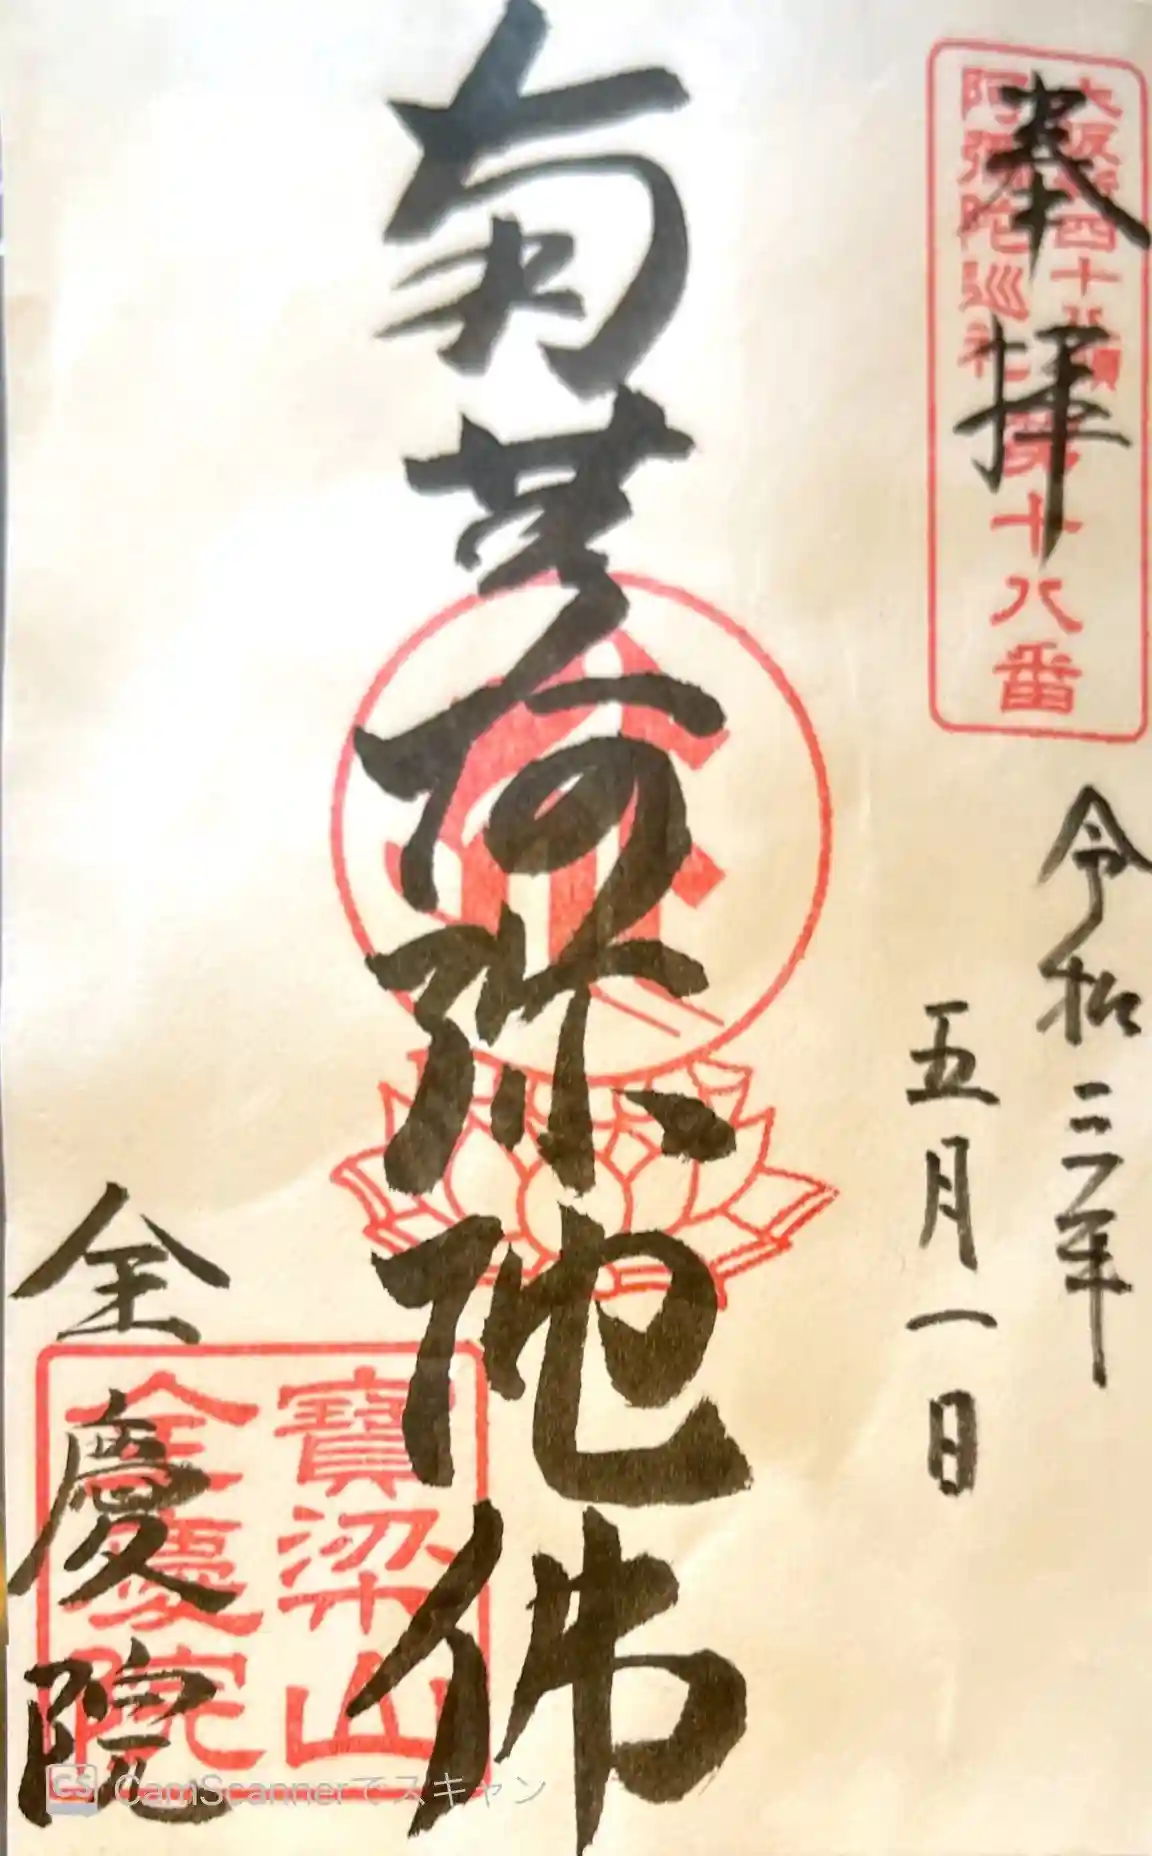 奉拝
大阪新四十八願
阿彌陀巡礼
第十八番
令和三年
五月一日
南無阿弥陀佛
寶梁山
全慶院
全慶院
CS CamScannerでスキャン